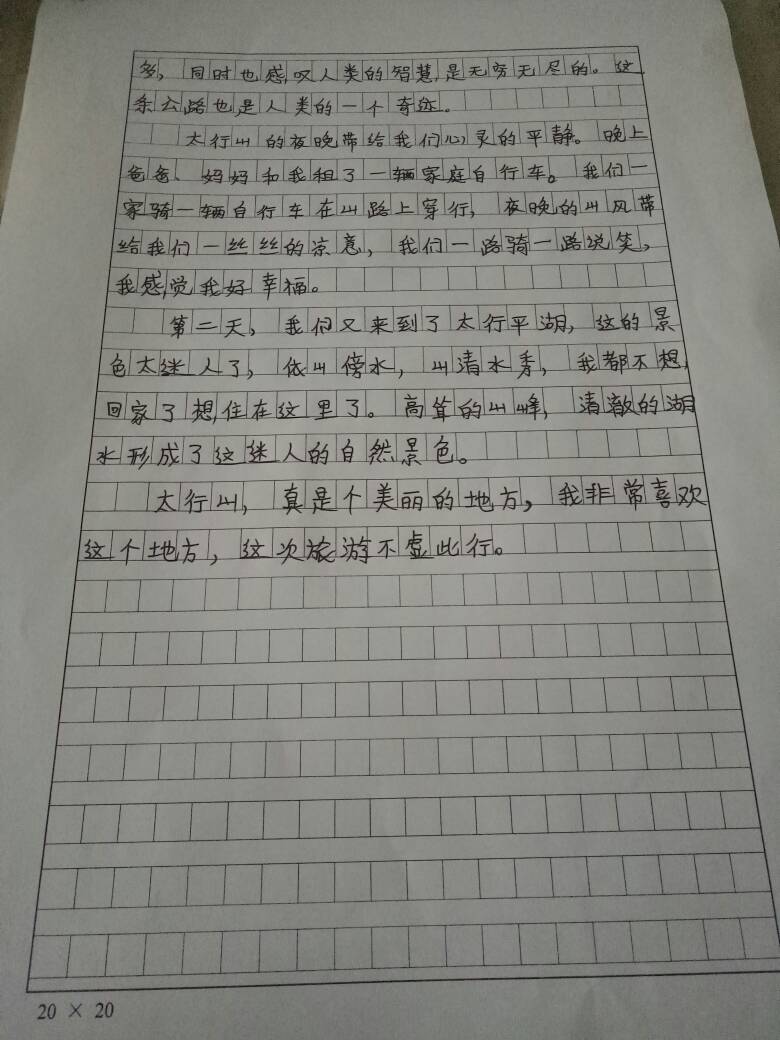 多，同时也感叹人类的智慧是无穷无尽的。这
条公路也是人类的一个奇迹。
太行山的夜晚带给我们心灵的平静。晚上
爸爸、妈妈和我租了一辆家庭自行车。我们一
家骑一辆自行车在山路上穿行，夜晚的山风带
给我们一丝丝的凉意，我们一路骑一路说笑，
我感觉我好幸福。
第二天，我们又来到了太行平湖，这的景
色太迷人了，依山傍水，山清水秀，我都不想
回家了想住在这里了。高耸的山峰，清澈的湖
水形成了这迷人的自然景色。
太行山，真是个美丽的地方，我非常喜欢
这个地方，这次旅游不虚此行。
20 × 20